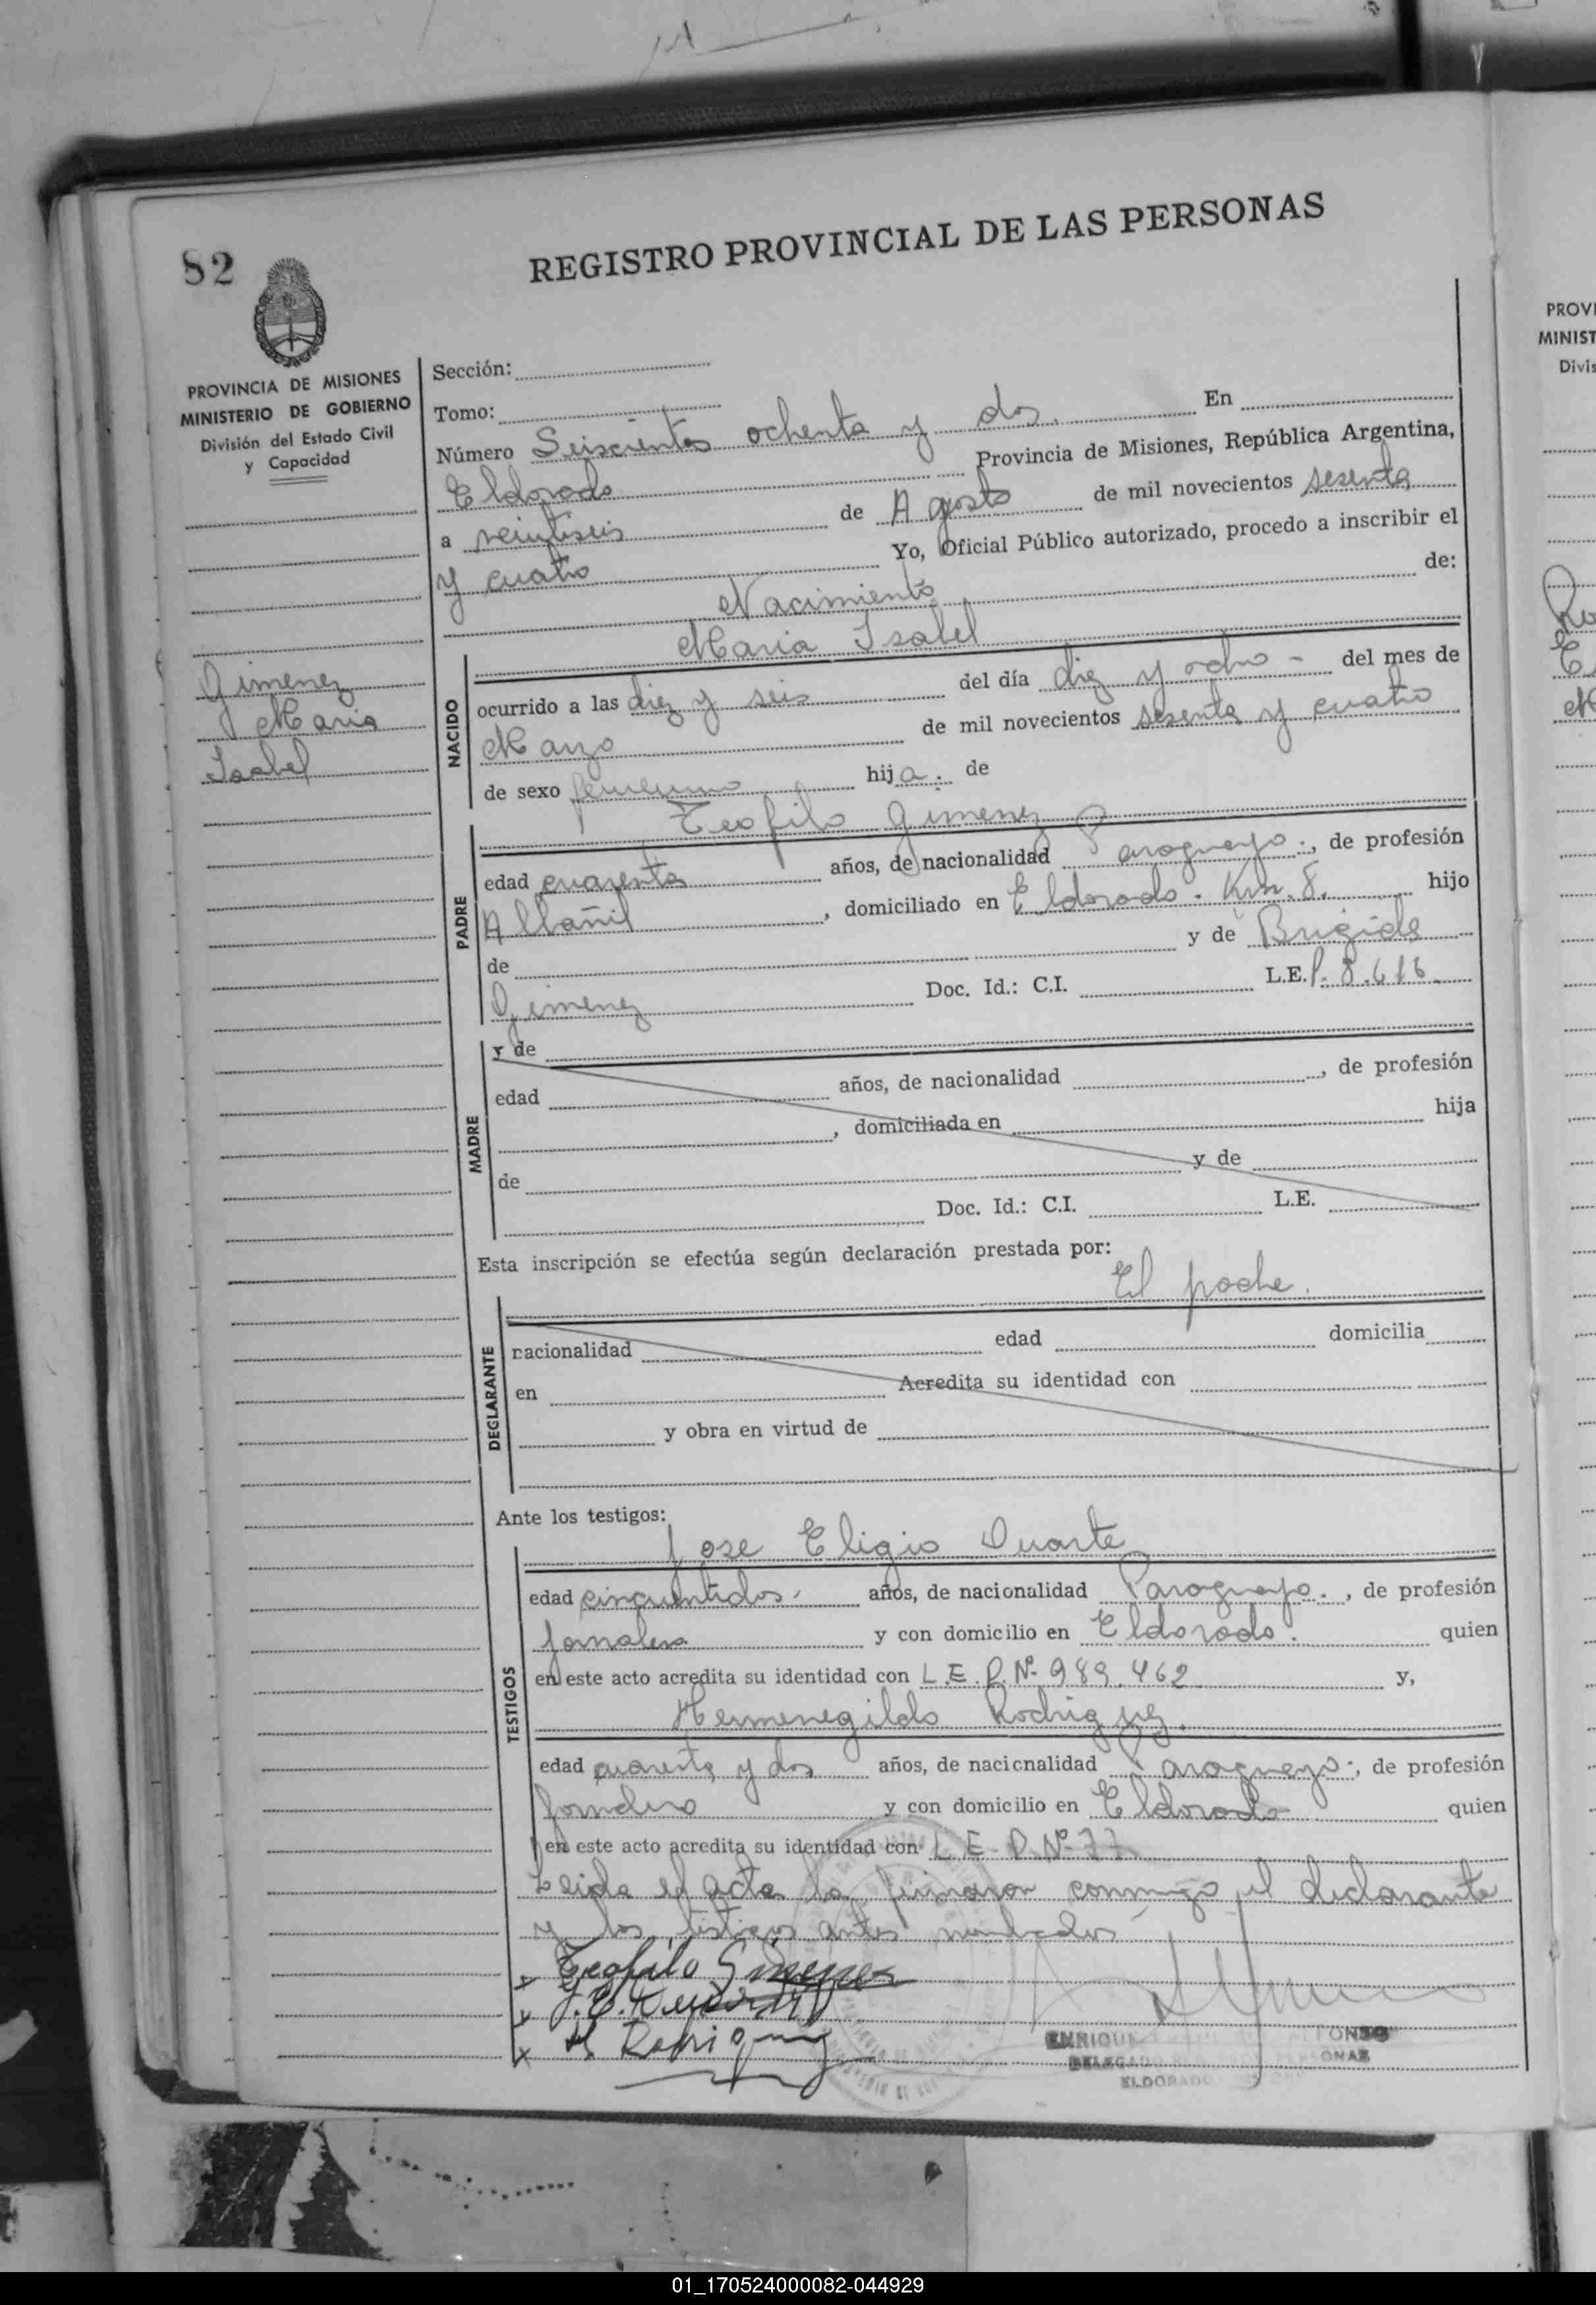 82
REGISTRO PROVINCIAL DE LAS PERSONAS
PROVINCIA DE MISIONES
MINISTERIO DE GOBIERNO
División del Estado Civil
y Capacidad
Gimenez
Maria
Isabel
Sección:
Tomo:
Número Seiscientos ochenta y dos. En
Eldorado Provincia de Misiones, República Argentina,
a veintiseis de Agosto de mil novecientos sesenta
y cuatro Yo, Oficial Público autorizado, procedo a inscribir el
Nacimiento de:
Maria Isabel
NACIDO
ocurrido a las diez y seis del día diez y ocho - del mes de
Marzo de mil novecientos sesenta y cuatro
de sexo femenino hija. de
Teofilo Gimenez
PADRE
edad cuarenta años, de nacionalidad Paraguayo., de profesión
Albañil, domiciliado en Eldorado. Km. 8. hijo
de y de Brigida
Gimenez Doc. Id.: C.I. L.E. P. 8.616.
MADRE
y de
edad años, de nacionalidad , de profesión
, domiciliada en hija
de y de
Doc. Id.: C.I. L.E.
Esta inscripción se efectúa según declaración prestada por:
El padre.
DECLARANTE
nacionalidad edad domicilia
en Acredita su identidad con
y obra en virtud de
Ante los testigos:
Jose Eligio Duarte
TESTIGOS
edad cincuentidos. años, de nacionalidad Paraguayo., de profesión
Jornalero y con domicilio en Eldorado. quien
en este acto acredita su identidad con L.E.P. Nº 989.462 y,
Hermenegildo Rodriguez.
edad cuarenta y dos años, de nacionalidad Paraguayo., de profesión
Jornalero y con domicilio en Eldorado quien
en este acto acredita su identidad con L.E.P. Nº 77
Leida el acta la firmaron conmigo el declarante
y los testigos antes nombrados
x Teofilo Gimenez
x
x H Rodriguez
ENRIQUE ALFONSO
DELEGADO PERSONAS
ELDORADO
PROVI
MINIST
Divis
01_170524000082-044929